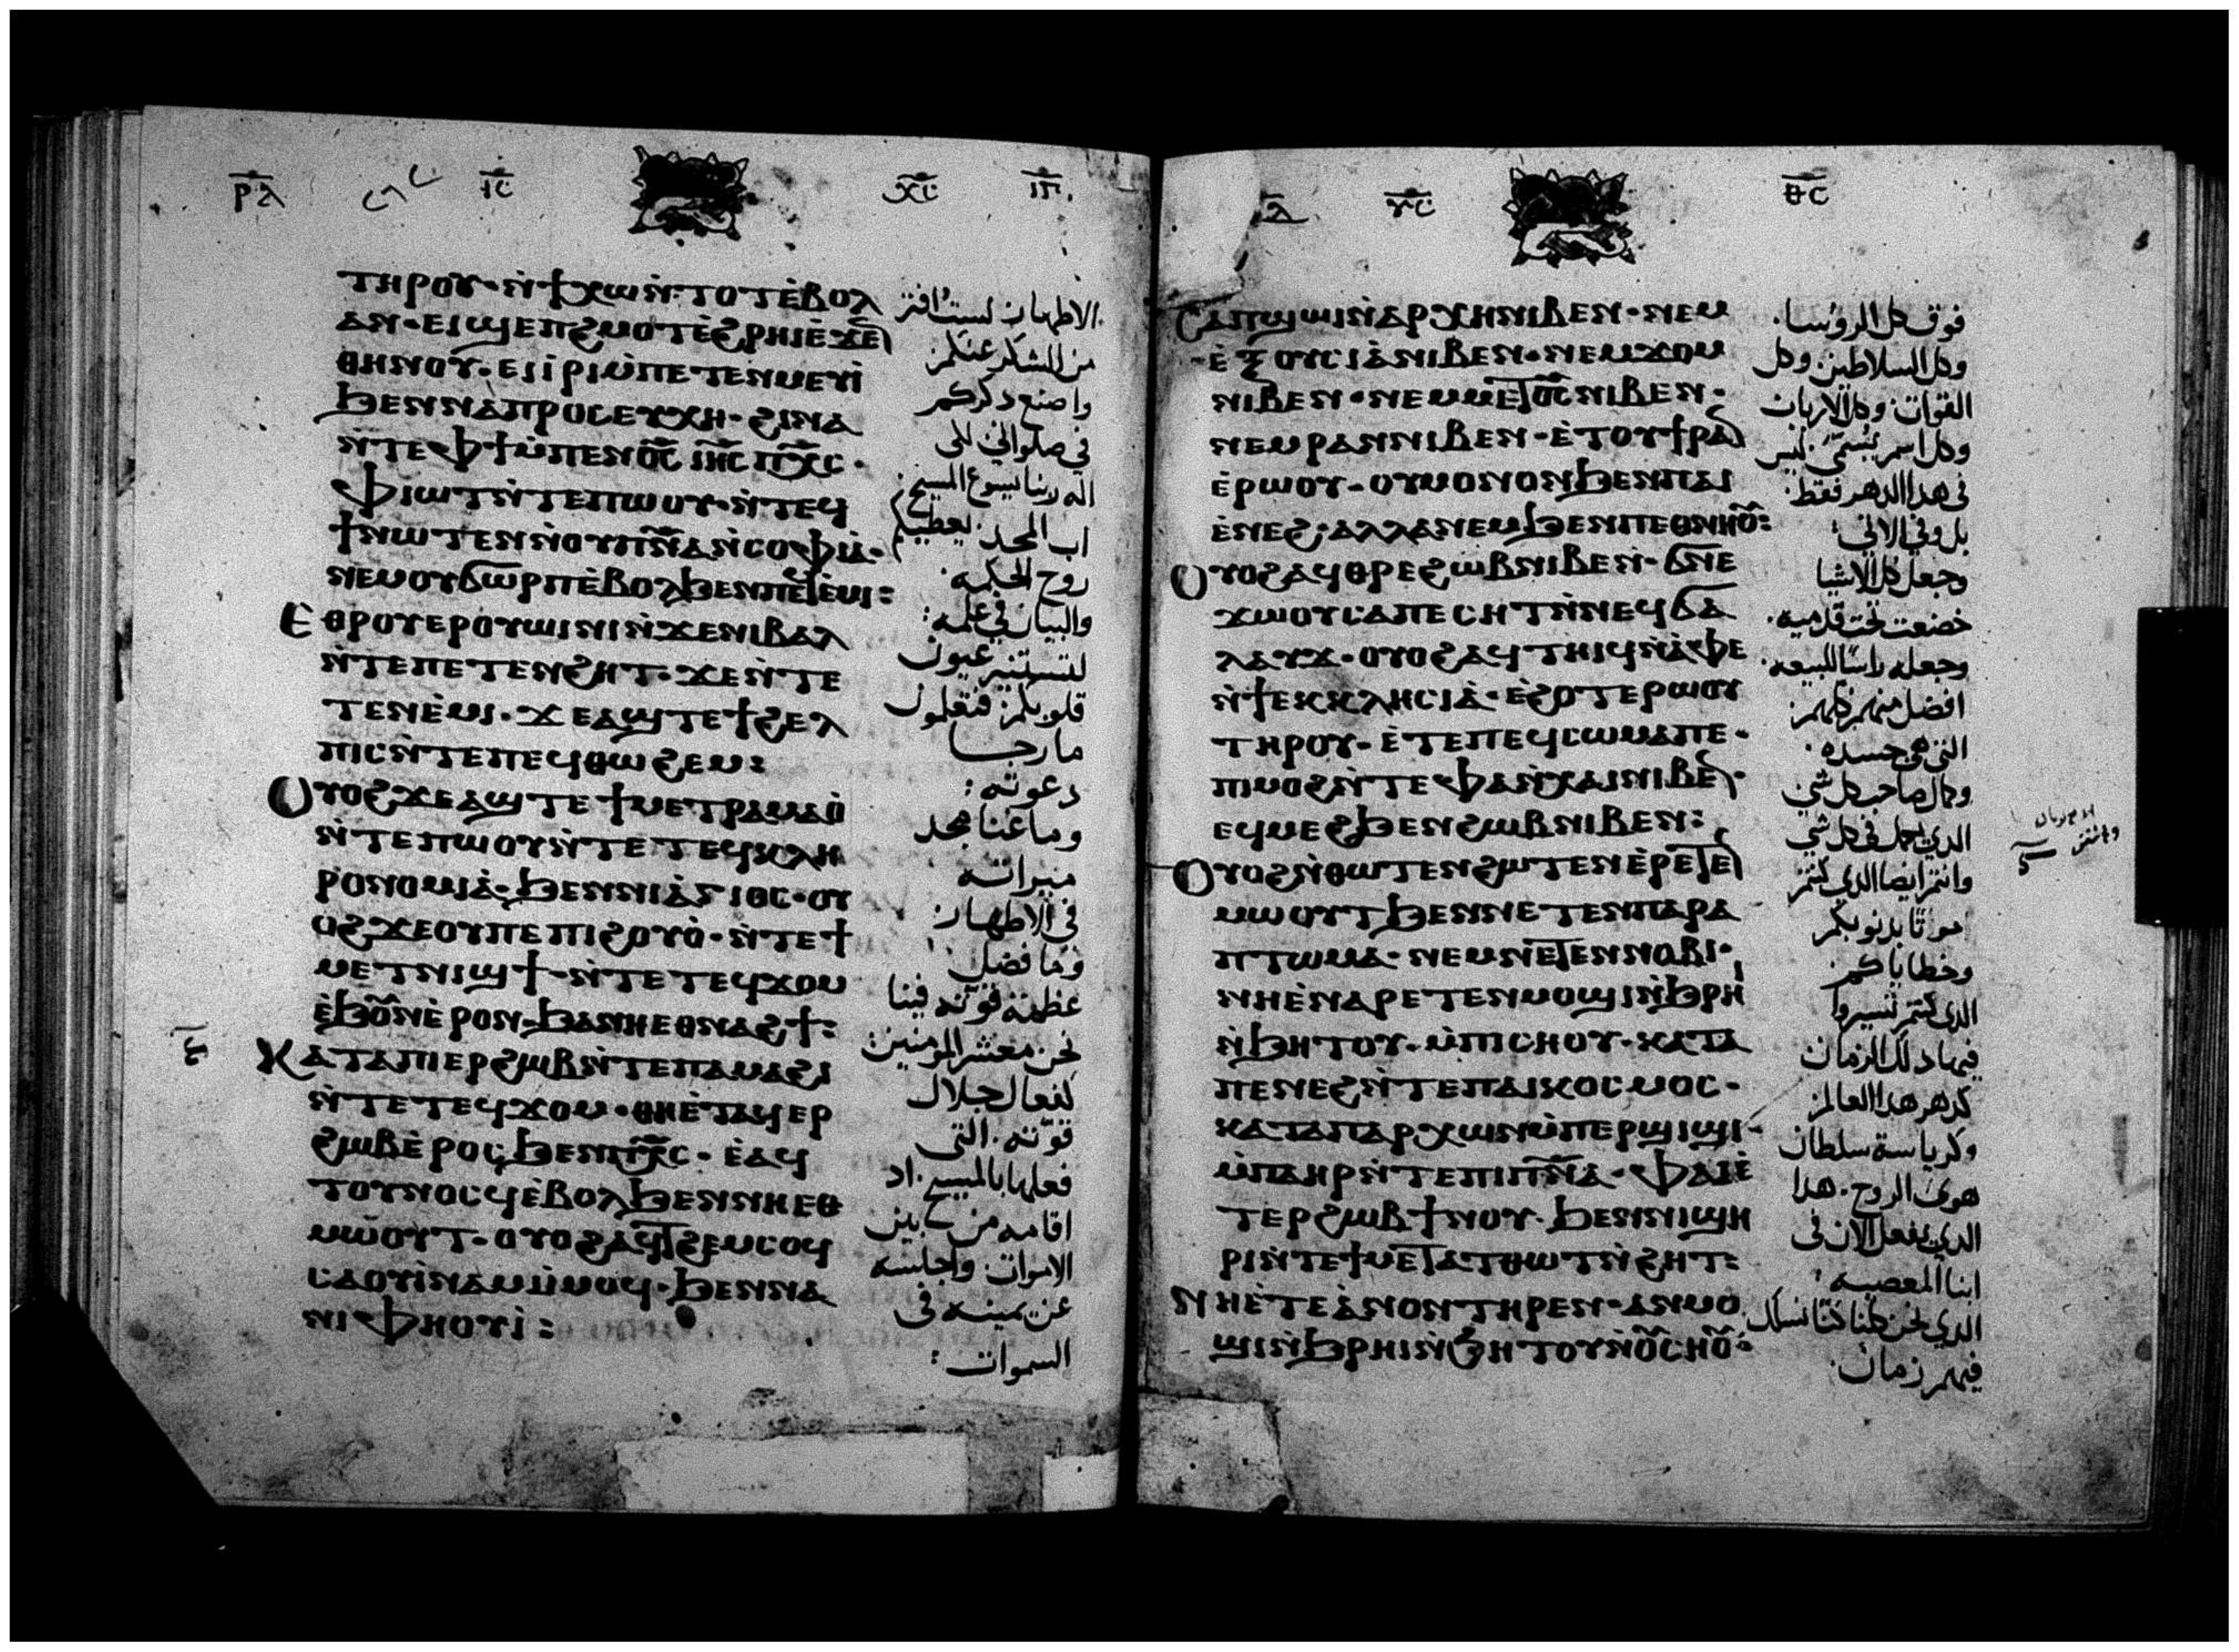 ⲣⲗ ⲓ̅ⲥ̅ ⲭ̅ⲥ̅
ⲧⲏⲣⲟⲩ· ⲛ̀ϯⲭⲱ ⲛ̀ⲧⲟⲧ ⲉ̀ⲃⲟⲗ
ⲁⲛ· ⲉⲓϣⲉⲡϩⲙⲟⲧ ⲉ̀ϩⲣⲏⲓ ⲉϫⲉⲛ
ⲑⲏⲛⲟⲩ· ⲉⲓⲓⲣⲓ ⲙ̀ⲡⲉⲧⲉⲛⲙⲉⲩⲓ̀
ϧⲉⲛ ⲛⲁⲡⲣⲟⲥⲉⲩⲭⲏ· ϩⲓⲛⲁ
ⲛ̀ⲧⲉ ⲫϯ ⲙ̀ⲡⲉⲛⲟ̅ⲥ̅ ⲓⲏ̅ⲥ̅ ⲡⲭ̅ⲥ̅·
ⲫⲓⲱⲧ ⲛ̀ⲧⲉ ⲡⲱⲟⲩ· ⲛ̀ⲧⲉϥ
ϯ ⲛⲱⲧⲉⲛ ⲛ̀ⲟⲩⲡⲛ̅ⲁ̅ ⲛ̀ⲥⲟⲫⲓⲁ̀·
ⲛⲉⲙ ⲟⲩϭⲱⲣⲡ ⲉ̀ⲃⲟⲗ ϧⲉⲛ ⲡⲉϥⲉ̀ⲙⲓ:
ⲉⲑⲣⲟⲩⲉⲣⲟⲩⲱⲓⲛⲓ ⲛ̀ϫⲉ ⲛⲓⲃⲁⲗ
ⲛ̀ⲧⲉ ⲡⲉⲧⲉⲛϩⲏⲧ· ϫⲉ ⲛ̀ⲧⲉ
ⲧⲉⲛⲉ̀ⲙⲓ· ϫⲉ ⲁϣ ⲧⲉ ϯϩⲉⲗ
ⲡⲓⲥ ⲛ̀ⲧⲉ ⲡⲉϥⲑⲱϩⲉⲙ:
ⲟⲩⲟϩ ϫⲉ ⲁϣ ⲧⲉ ϯⲙⲉⲧⲣⲁⲙⲁⲟ̀
ⲛ̀ⲧⲉ ⲡⲱⲟⲩ ⲛ̀ⲧⲉ ⲧⲉϥⲕⲗⲏ
ⲣⲟⲛⲟⲙⲓⲁ̀· ϧⲉⲛ ⲛⲓⲁ̀ⲅⲓⲟⲥ· ⲟⲩ
ⲟϩ ϫⲉ ⲟⲩ ⲡⲉ ⲡⲓϩⲟⲩⲟ̀· ⲛ̀ⲧⲉ ϯ
ⲙⲉⲧⲛⲓϣϯ· ⲛ̀ⲧⲉ ⲧⲉϥϫⲟⲙ
ⲉ̀ϧⲟⲩⲛ ⲉ̀ⲣⲟⲛ· ϧⲁ ⲛⲏⲉⲑⲛⲁϩϯ:
ⲕⲁⲧⲁ ⲡⲓⲉⲣϩⲱⲃ ⲛ̀ⲧⲉ ⲡⲁⲙⲁϩⲓ
ⲛ̀ⲧⲉ ⲧⲉϥϫⲟⲙ· ⲑⲏⲉ̀ⲧⲁϥⲉⲣ
ϩⲱⲃ ⲉ̀ⲣⲟⲥ ϧⲉⲛ ⲡⲭ̅ⲥ̅· ⲉ̀ⲁϥ
ⲧⲟⲩⲛⲟⲥϥ ⲉ̀ⲃⲟⲗ ϧⲉⲛ ⲛⲏⲉⲑ
ⲙⲱⲟⲩⲧ· ⲟⲩⲟϩ ⲁϥⲧϩⲉⲙⲥⲟϥ
ⲥⲁⲟⲩⲓ̀ⲛⲁⲙ ⲙ̀ⲙⲟϥ· ϧⲉⲛ ⲛⲁ
ⲛⲓⲫⲏⲟⲩⲓ̀:
الاطهار لست افتر
من الشكر عنكم
واصنع ذكركم
في صلواتي لكي
اله ربنا يسوع المسيح
اب المجد يعطيكم
روح الحكمه
والبيان في علمه:
لتستنير عيون
قلوبكم فتعلمون
ما رجا
دعوته:
وما غنا مجد
ميراثه
في الاطهار
وما فضل
عظمة قوته فينا
نحن معشر المومنين
كفعال جلال
قوته. التي
فعلها بالمسيح. اد
اقامه من بين
الاموات واجلسه
عن يمينه في
السموات:
ⲩ̅ⲥ̅ ⲑ̅ⲥ̅
ⲥⲁⲡϣⲱⲓ ⲛ̀ⲁⲣⲭⲏ ⲛⲓⲃⲉⲛ· ⲛⲉⲙ
ⲉ̀ⲝⲟⲩⲥⲓⲁ̀ ⲛⲓⲃⲉⲛ· ⲛⲉⲙ ϫⲟⲙ
ⲛⲓⲃⲉⲛ· ⲛⲉⲙ ⲙⲉⲧⲟ̅ⲥ̅ ⲛⲓⲃⲉⲛ·
ⲛⲉⲙ ⲣⲁⲛ ⲛⲓⲃⲉⲛ· ⲉ̀ⲧⲟⲩϯⲣⲁⲛ
ⲉ̀ⲣⲱⲟⲩ· ⲟⲩⲙⲟⲛⲟⲛ ϧⲉⲛ ⲡⲁⲓ
ⲉ̀ⲛⲉϩ· ⲁⲗⲗⲁ ⲛⲉⲙ ϧⲉⲛ ⲡⲉⲑⲛⲏⲟⲩ:
ⲟⲩⲟϩ ⲁϥⲑⲣⲉ ϩⲱⲃ ⲛⲓⲃⲉⲛ· ϭⲛⲉ
ϫⲱⲟⲩ ⲥⲁⲡⲉⲥⲏⲧ ⲛ̀ⲛⲉϥϭⲁ
ⲗⲁⲩϫ· ⲟⲩⲟϩ ⲁϥⲧⲏⲓϥ ⲛ̀ⲁ̀ⲫⲉ
ⲛ̀ϯⲉⲕⲕⲗⲏⲥⲓⲁ̀· ⲉ̀ϩⲟⲧⲉⲣⲱⲟⲩ
ⲧⲏⲣⲟⲩ· ⲉ̀ⲧⲉ ⲡⲉϥⲥⲱⲙⲁ ⲡⲉ·
ⲡⲙⲟϩ ⲛ̀ⲧⲉ ⲫⲁ ⲛ̀ⲭⲁⲓ ⲛⲓⲃⲉⲛ·
ⲉϥⲙⲉϩ ϧⲉⲛ ϩⲱⲃ ⲛⲓⲃⲉⲛ:
ⲟⲩⲟϩ ⲛ̀ⲑⲱⲧⲉⲛ ϩⲱⲧⲉⲛ ⲉ̀ⲣⲉⲧⲉⲛ
ⲙⲱⲟⲩⲧ ϧⲉⲛ ⲛⲉⲧⲉⲛⲡⲁⲣⲁ
ⲡⲧⲱⲙⲁ· ⲛⲉⲙ ⲛⲉⲧⲉⲛⲛⲟⲃⲓ·
ⲛⲏⲉ̀ⲛⲁⲣⲉⲧⲉⲛⲙⲟϣⲓ ⲛ̀ϧⲣⲏⲓ
ⲛ̀ϧⲏⲧⲟⲩ· ⲙ̀ⲡⲓⲥⲏⲟⲩ· ⲕⲁⲧⲁ
ⲡⲉⲛⲉϩ ⲛ̀ⲧⲉ ⲡⲁⲓⲕⲟⲥⲙⲟⲥ·
ⲕⲁⲧⲁ ⲡⲁⲣⲭⲱⲛ ⲙ̀ⲡⲉⲣϣⲓϣⲓ·
ⲙ̀ⲡⲁⲏⲣ ⲛ̀ⲧⲉ ⲡⲓⲡⲛ̅ⲁ̅· ⲫⲁⲓ ⲉ̀
ⲧⲉⲣϩⲱⲃ ϯⲛⲟⲩ· ϧⲉⲛ ⲛⲓϣⲏ
ⲣⲓ ⲛ̀ⲧⲉ ϯⲙⲉⲧⲁⲧⲑⲱⲧ ⲛ̀ϩⲏⲧ:
ⲛⲏⲉ̀ⲧⲉ ⲁ̀ⲛⲟⲛ ⲧⲏⲣⲉⲛ· ⲁⲛⲙⲟ
ϣⲓ ⲛ̀ϧⲣⲏⲓ ⲛ̀ϧⲏⲧⲟⲩ ⲛ̀ⲟⲩⲥⲏⲟⲩ·
فوق كل الروسا.
وكل السلاطين وكل
القوات وكل الارباب
وكل اسم يسمى ليس
في هدا الدهر فقط.
بل وفي الاتي:
وجعل كل الاشيا
خضعت تحت قدميه.
وجعله راسا للبيعه.
افضل منهم كلهم
التي هي جسده.
وكمال صاحب كل شي
الدي يكمل في كل شي
وانتم ايضا الدي كنتم
موتا بدنوبكم
وخطاياكم
الدي كنتم تسيروا
فيها دلك الزمان
كدهر هدا العالم
وكرياسة سلطان
هوى الروح. هدا
الدي يفعل الان في
ابنا المعصيه:
الدي نحن كلنا كنا نسلك
فيهم زمان.